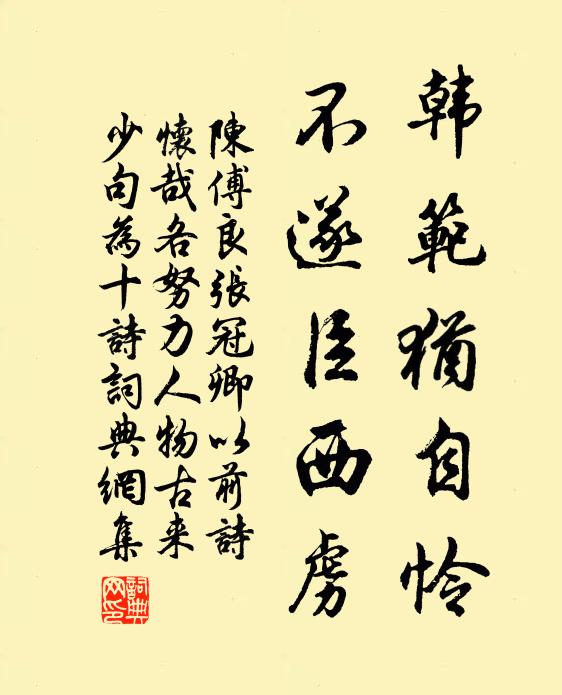 韩範猶自怜
不遂臣西虏
陳傅良張冠卿以前詩
懷哉各努力人物古来
少句為十詩詞典網集
詞典
网印